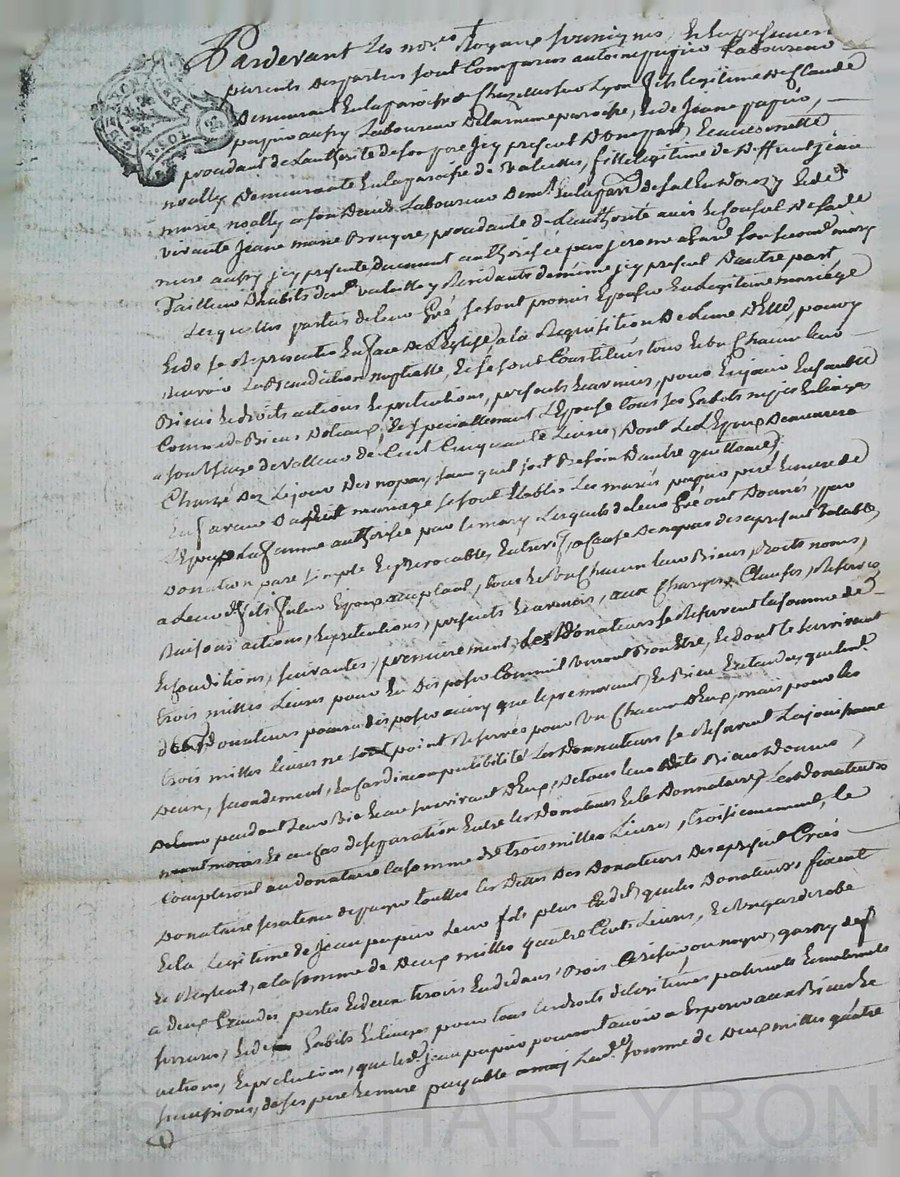 Pardevant les no.res Royaux soussignes, et la presence
parents des parties sont comparus antoine papier Laboureur
demeurant en la paroisse de Chazelles sur Lyon fils legitime de Claude
papier aussy Laboureur de la meme paroisse, et de Jeanne papier,
procedant de l'authorité de son pere icy present d'une part, et
noally demeurante en la paroisse de Valeilles, fille legitime de deffunt jean
marie noally a son deces Laboureur dem.t en la par.e de et de
vivante Jeane marie Bruyere, procedante de l'authorité avis et conseil de sade
mere aussy icy presente duement authorisée par jerome son second mary
Tailleur d'habits dud. valeille y Residants de meme icy present d'autre part
Lesquelles parties de leur Gré, se sont promis Epouser en Legitime mariage
et de se Representer en face de l'Eglise, a la Requisition de l'une d'Elles, pour y
Recevoir la Benediction nuptialle, et se sont Constitués tous et un chacun leurs
Biens et droits actions et pretentions, presents et avenirs, pour
Comme de Biens dotaux, et specialement l'Epouse tous ses habits nipes et linges
a son usage de valleur de Cent Cinquante Livres, dont led. Epoux demeurera
Chargé dez Le jour des nopces, sans quil soit Besoin d'autre quittance;
En faveur dudit mariage se sont Etablis Les mariés papier pere et mere de
L'Epoux La femme authorisée par le mary Lesquels de leur Gré ont Donnés, par
donation pure simple et irrevocable, Entre vifs, a cause de nopces des a present valable,
a leur d. fils futur Epoux acceptant, tous et un Chacun leurs Biens, droits noms,
Raisons actions, et pretentions, presents et avenirs, aux Charges, Clauses, Reserves
et conditions, suivantes, premierement, Les Donateurs se Reservent la somme de
trois milles Livres pour en disposer Comme ils verront Bon Etre, et dont le survivant
desd. donateurs pourra disposer aussy que le premourant, et Bien Entendu, que lesd.
trois milles livres ne point reservés pour un chacun d'Eux, mais pour les
deux, secondement, En cas d'incompatibilité Les Donnateurs se Reservent la jouissance
pendant leur vie et au survivant d'Eux, de tous leurs dits Biens
et en cas de separation Entre les donateurs et le Donnataire, Les donateurs
Compteront au donataire la somme de trois milles Livres, troisiemement, le
Donataire sera tenu de payer touttes les Dettes des Donateurs des a present Créés
et la Legitime de Jean papier Leur fils plus que les Donateurs fixent
et Reglent, a la somme de deux milles quatre Cent Livres, et un garderobe
a deux Grandes portes et deux tiroirs au dedans Bois Cerisier ou noyer, garny de
ferrures, et de habits et linges pour tous ses droits de legitimes paternels et maternels
actions, et pretentions, que led. Jean papier pourrait avoir a Esperer aux Biens et
successions, de ses pere et mere payable lad. somme de deux milles quatre
Pascal CHAREYRON